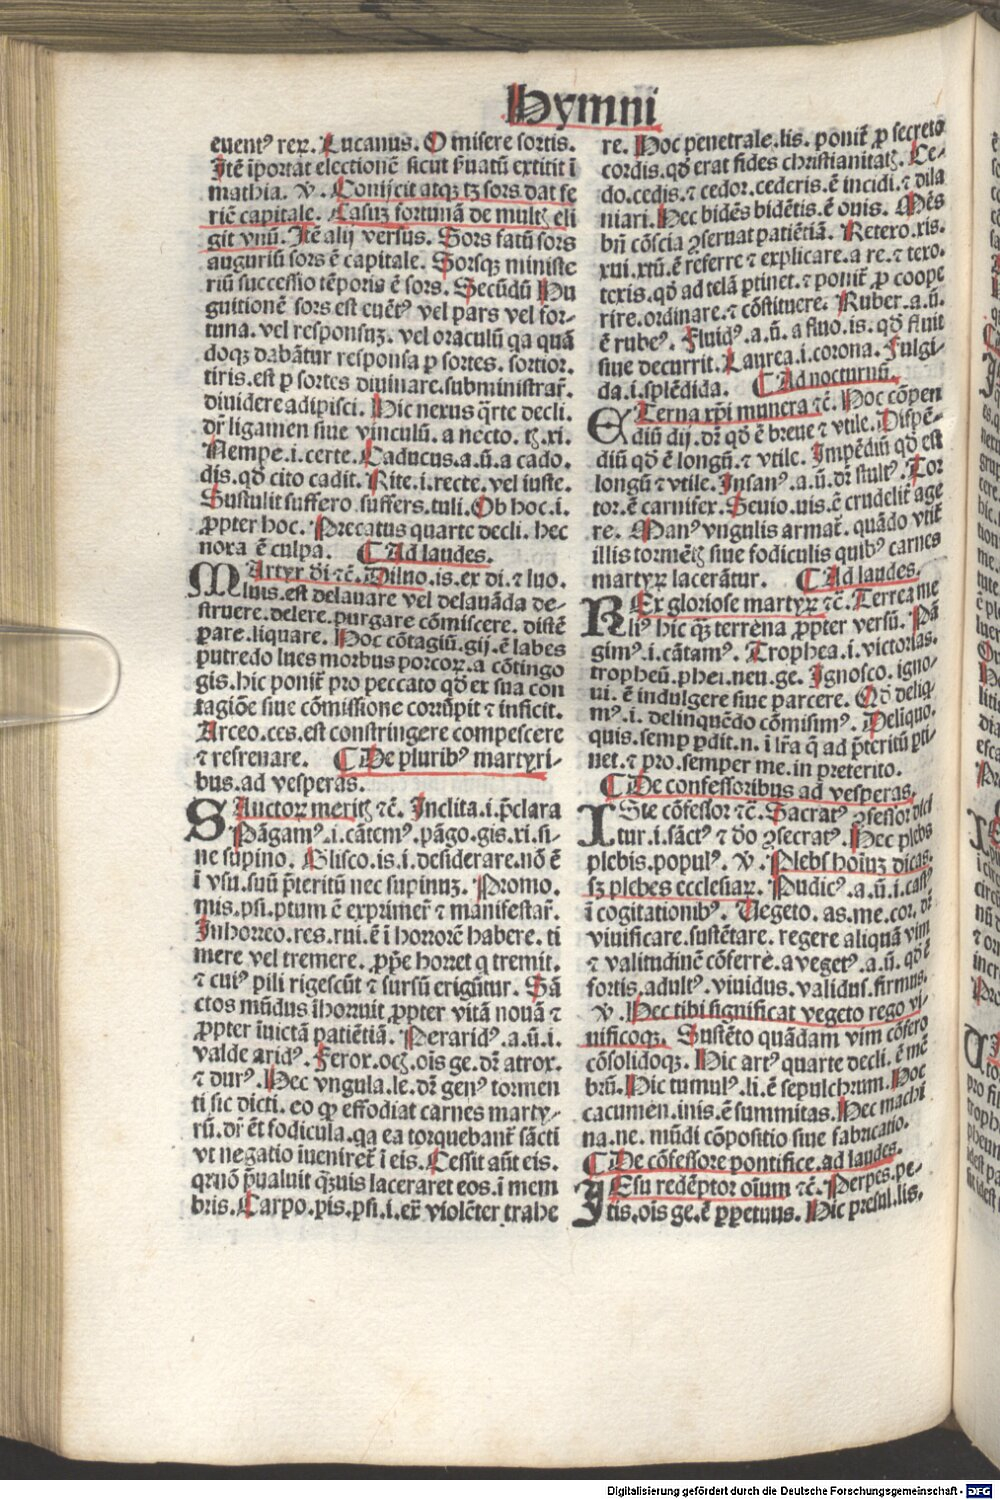 Hymni
euentꝰ reꝝ. Lucanus. O misere sortis.
Itē īportat electionē sicut ẜuatū extitit ī
mathia. ꝟ. Conijcit atqꝫ tꝫ sors dat se
riē capitale. Casuꝫ fortunā de multꝭ eli
git vnū. Itē alij versus. Sors fatū sors
auguriū sors ē capitale. Sorsqꝫ ministe
riū successio tēporis ē sors. Secūdū Hu
guitionē sors est euētꝰ vel pars vel for-
tuna. vel responsuꝫ. vel oraculū qa quā
doqꝫ dabātur responsa ꝑ sortes. sortior.
tiris. est ꝑ sortes diuinare. subministrar̄.
diuidere adipisci. Hic nexus q̄rte decli.
dr̄ ligamen siue vinculū. a necto. tꝭ. xi.
Nempe .i. certe. Caducus. a. ū. a cado.
dis. qđ cito cadit. Rite .i. recte. vel iuste.
Sustulit suffero suffers. tuli. Ob hoc .i.
ꝓpter hoc. Precatus quarte decli. hec
noxa ē culpa. Ad laudes.
MArtyr dī ⁊c̄. Diluo. is. ex di. ⁊ luo.
luis. est delauare vel delauāda de-
struere. delere. purgare cōmiscere. distē
ꝑare. liquare. Hoc cōtagiū. gij. ē labes
putredo lues morbus porcoꝝ. a cōtingo
gis. hic ponit̄ pro peccato qđ ex sua con
tagiōe siue cōmissione corrūpit ⁊ inficit.
Arceo. ces. est constringere compescere
⁊ refrenare. De pluribꝰ martyri-
bus. ad vesperas.
SAnctoꝝ meritꝭ ⁊c̄. Inclita .i. p̄clara
Pāgamꝰ .i. cātemꝰ. pāgo. gis. xi. si-
ne supino. Glisco. is. i. desiderare. nō ē
ī vsu. suū p̄teritū nec supinuꝫ. Promo.
mis. psi. ptum ē exprimer̄ ⁊ manifestar̄.
Inhorreo. res. rui. ē ī horrorē habere. ti
mere vel tremere. ꝓp̄e horret q tremit.
⁊ cuiꝰ pili rigescūt ⁊ sursū erigūtur. Sā
ctos mūdus īhorruit ꝓpter vitā nouā ⁊
ꝓpter īuictā patiētiā. Peraridꝰ. a. ū. i.
valde aridꝰ. Ferox. ocꝭ. oīs ge. dr̄ atrox.
⁊ durꝰ. Hec vngula. le. dr̄ genꝰ tormen
ti sic dicti. eo ꝙ effodiat carnes marty-
rū. dr̄ ēt fodicula. qa ea torquebant̄ sācti
vt negatio īueniret̄ ī eis. Cessit aūt eis.
qꝛ nō p̄ualuit q̄ꝫuis laceraret eos. ī mem
bris. Carpo. pis. psi. i. ex̄ violēter trahe
re. Hoc penetrale. lis. ponit̄ ꝓ secreto
cordis. qđ erat fides christianitatꝭ. Ce-
do. cedis. ⁊ cedor. cederis. ē incidi. ⁊ dila
niari. Hec bidēs bidētis. ē ouis. Mēs
bn̄ cōscia ꝯseruat patiētiā. Retexo. xis.
xui. xtū. ē referre ⁊ explicare. a re. ⁊ texo.
texis. qđ ad telā ꝑtinet. ⁊ ponit̄ ꝓ coope
rire. ordinare. ⁊ cōstituere. Ruber. a. ū.
ē rubeꝰ. Fluidꝰ. a. ū. a fluo. is. qđ fluit
siue decurrit. Laurea .i. corona. Fulgi-
da .i. splēdida. Ad nocturnū.
ETerna xp̄i munera ⁊c̄. Hoc cōpen
diū dij. dr̄ qđ ē breue ⁊ vtile. Dispē-
diū qđ ē longū. ⁊ vtile. Impēdiū qđ est
longū ⁊ vtile. Insanꝰ. a. ū. dr̄ stultꝰ. Tor
tor. ē carnifex. Seuio. uis. ē crudelit̄ age
re. Manꝰ vngulis armat̄. quādo vtit̄
illis tormētꝭ siue fodiculis quibꝰ carnes
martyꝝ lacerātur. Ad laudes.
REx gloriose martyꝝ ⁊c̄. Terrea me
liꝰ hic qꝫ terrena ꝓpter versū. Pā
gimꝰ .i. cātamꝰ. Trophea .i. victorias.
tropheū. phei. neu. ge. Ignosco. igno-
ui. ē indulgere siue parcere. Qđ deliq̄
mꝰ .i. delinquēdo cōmisimꝰ. Deliquo.
quis. semp ꝑdit. n. ī lr̄a q̄ ad p̄teritū ꝑti-
net. ⁊ pro. semper me. in preterito.
De confessoribus ad vesperas.
ISte cōfessor ⁊c̄. Sacratꝰ ꝯfessor dici
tur .i. sāctꝰ ⁊ dō ꝯsecratꝰ. Hec plebs
plebis. populꝰ. ꝟ. Plebs hoīuꝫ dicas.
sꝫ plebes ecclesiaꝝ. Pudicꝰ. a. ū. i. castꝰ
ī cogitationibꝰ. Uegeto. as. me. cor. dr̄
viuificare. sustētare. regere aliquā vim
⁊ valitudinē cōferre. a vegetꝰ. a. ū. qđ ē
fortis. adultꝰ. viuidus. validus. firmus.
ꝟ. Hec tibi significat vegeto rego vi-
uificoqꝫ. Sustēto quādam vim cōfero
cōsolidoqꝫ. Hic artꝰ quarte decli. ē mē
brū. Hic tumulꝰ. li. ē sepulchrum. Hoc
cacumen. inis. ē summitas. Hec machi
na. ne. mūdi cōpositio siue fabricatio.
De cōfessore pontifice. ad laudes.
IEsu redēptor oīum ⁊c̄. Perpes. pe-
tis. oīs ge. ē ꝑpetuus. Hic presul. lis.
Digitalisierung gefördert durch die Deutsche Forschungsgemeinschaft - DFG